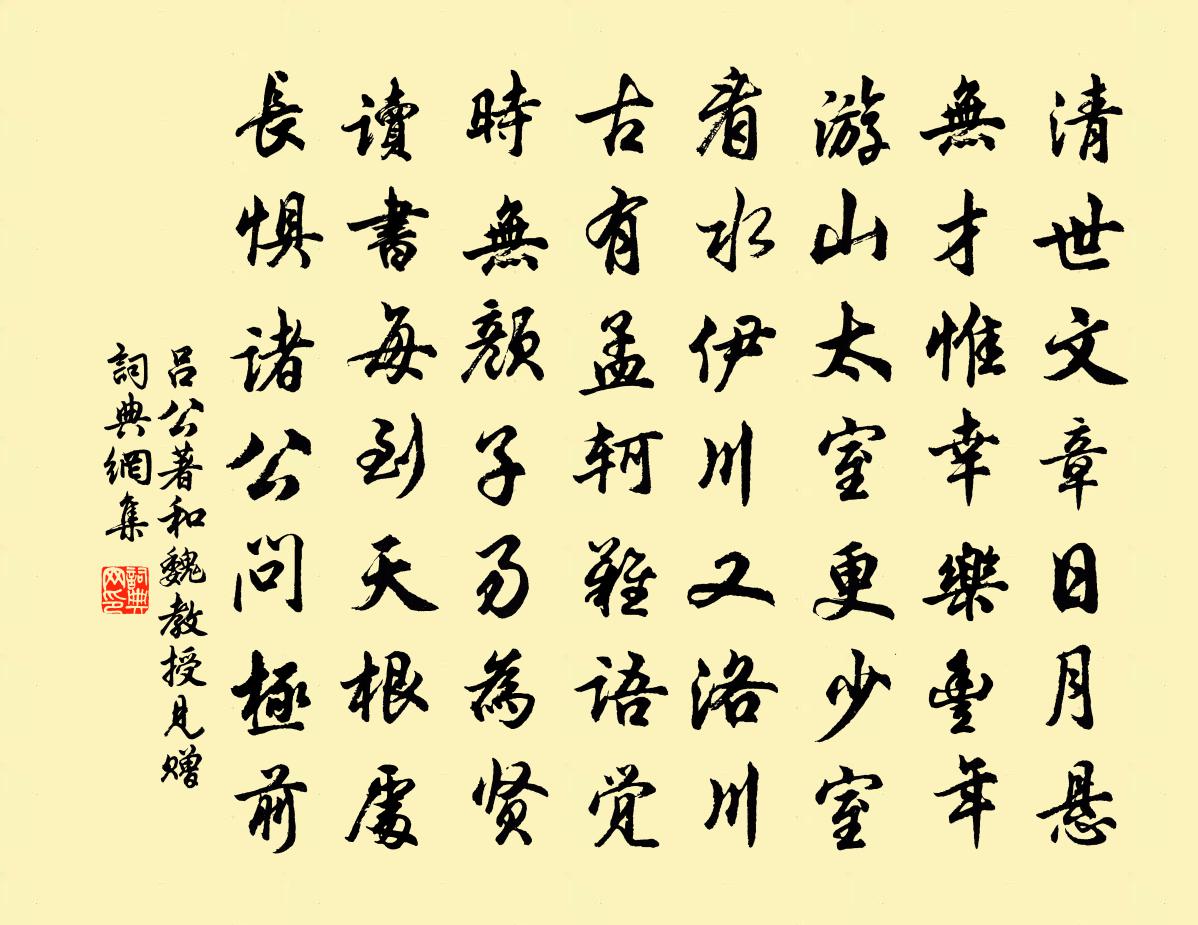 清世文章日月悬
無才惟幸樂豐年
游山太室更少室
看水伊川又洛川
古有孟轲難語觉
時無顏子易為贤
讀書每到天根處
長惧諸公問極前
吕公著和魏教授見赠
詞典網集
詞典网印